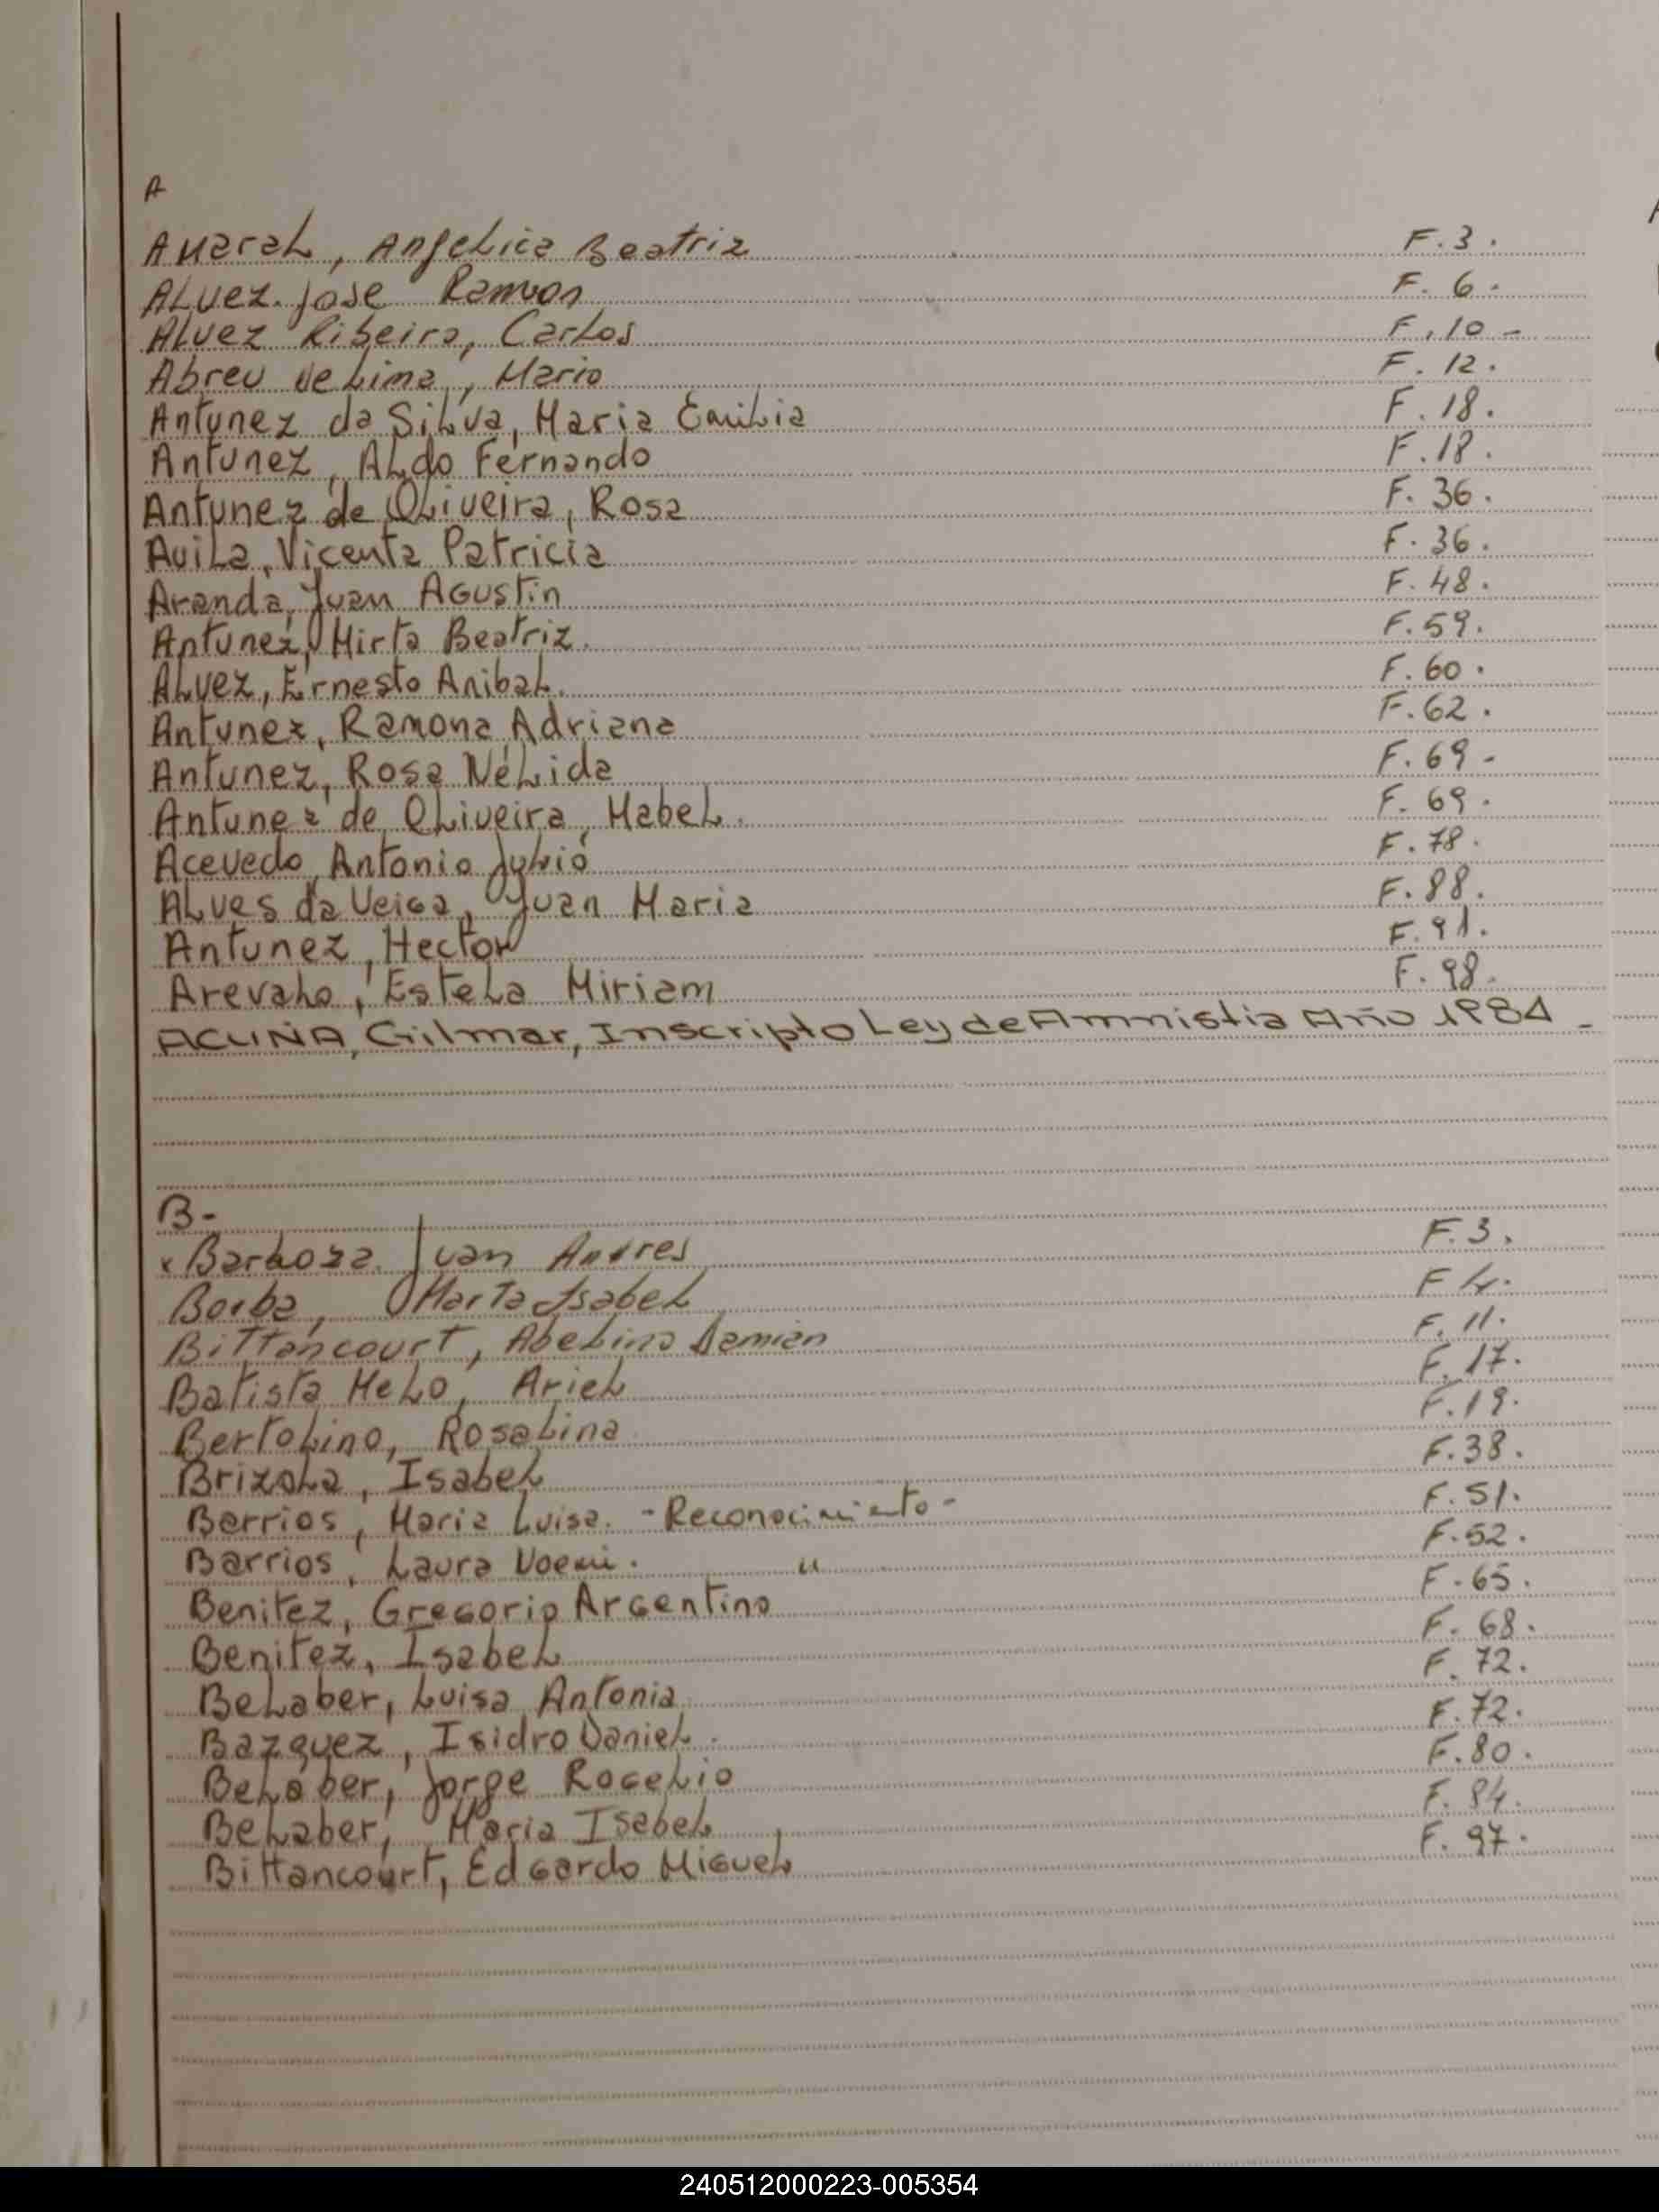 A
Amaral, Angelica Beatriz F. 3.
Alvez. Jose Ramon F. 6.
Alvez Ribeiro, Carlos F. 10-
Abreu de Lima, Mario F. 12.
Antunez da Silva, Maria Emilia F. 18.
Antunez, Aldo Fernando F. 18.
Antunez de Oliveira, Rosa F. 36.
Avila, Vicenta Patricia F. 36.
Aranda, Juan Agustin F. 48.
Antunez, Mirta Beatriz. F. 59.
Alvez, Ernesto Anibal. F. 60.
Antunez, Ramona Adriana F. 62.
Antunez, Rosa Nélida F. 69-
Antunez de Oliveira, Mabel. F. 69.
Acevedo, Antonio Julio F. 78.
Alves da Veiga, Juan Maria F. 88.
Antunez, Hector F. 91.
Arevalo, Estela Miriam F. 98.
ACUÑA, Gilmar, Inscripto Ley de Amnistia Año 1984-
B-
Barboza. Juan Andres F. 3.
Borba, Marta Isabel F 4.
Bittancourt, Abelino Damian F. 11.
Batista Melo, Ariel F. 17.
Bertolino, Rosalina F. 19.
Brizola, Isabel F. 38.
Barrios, Maria Luisa. -Reconocimiento- F. 51.
Barrios, Laura Noemi. " F. 52.
Benitez, Gregorio Argentino F. 65.
Benitez, Isabel F. 68.
Belaber, Luisa Antonia F. 72.
Bazquez, Isidro Daniel. F. 72.
Belaber, Jorge Rogelio F. 80.
Belaber, Maria Isabel F. 84.
Bittancourt, Edgardo Miguel F. 97.
240512000223-005354